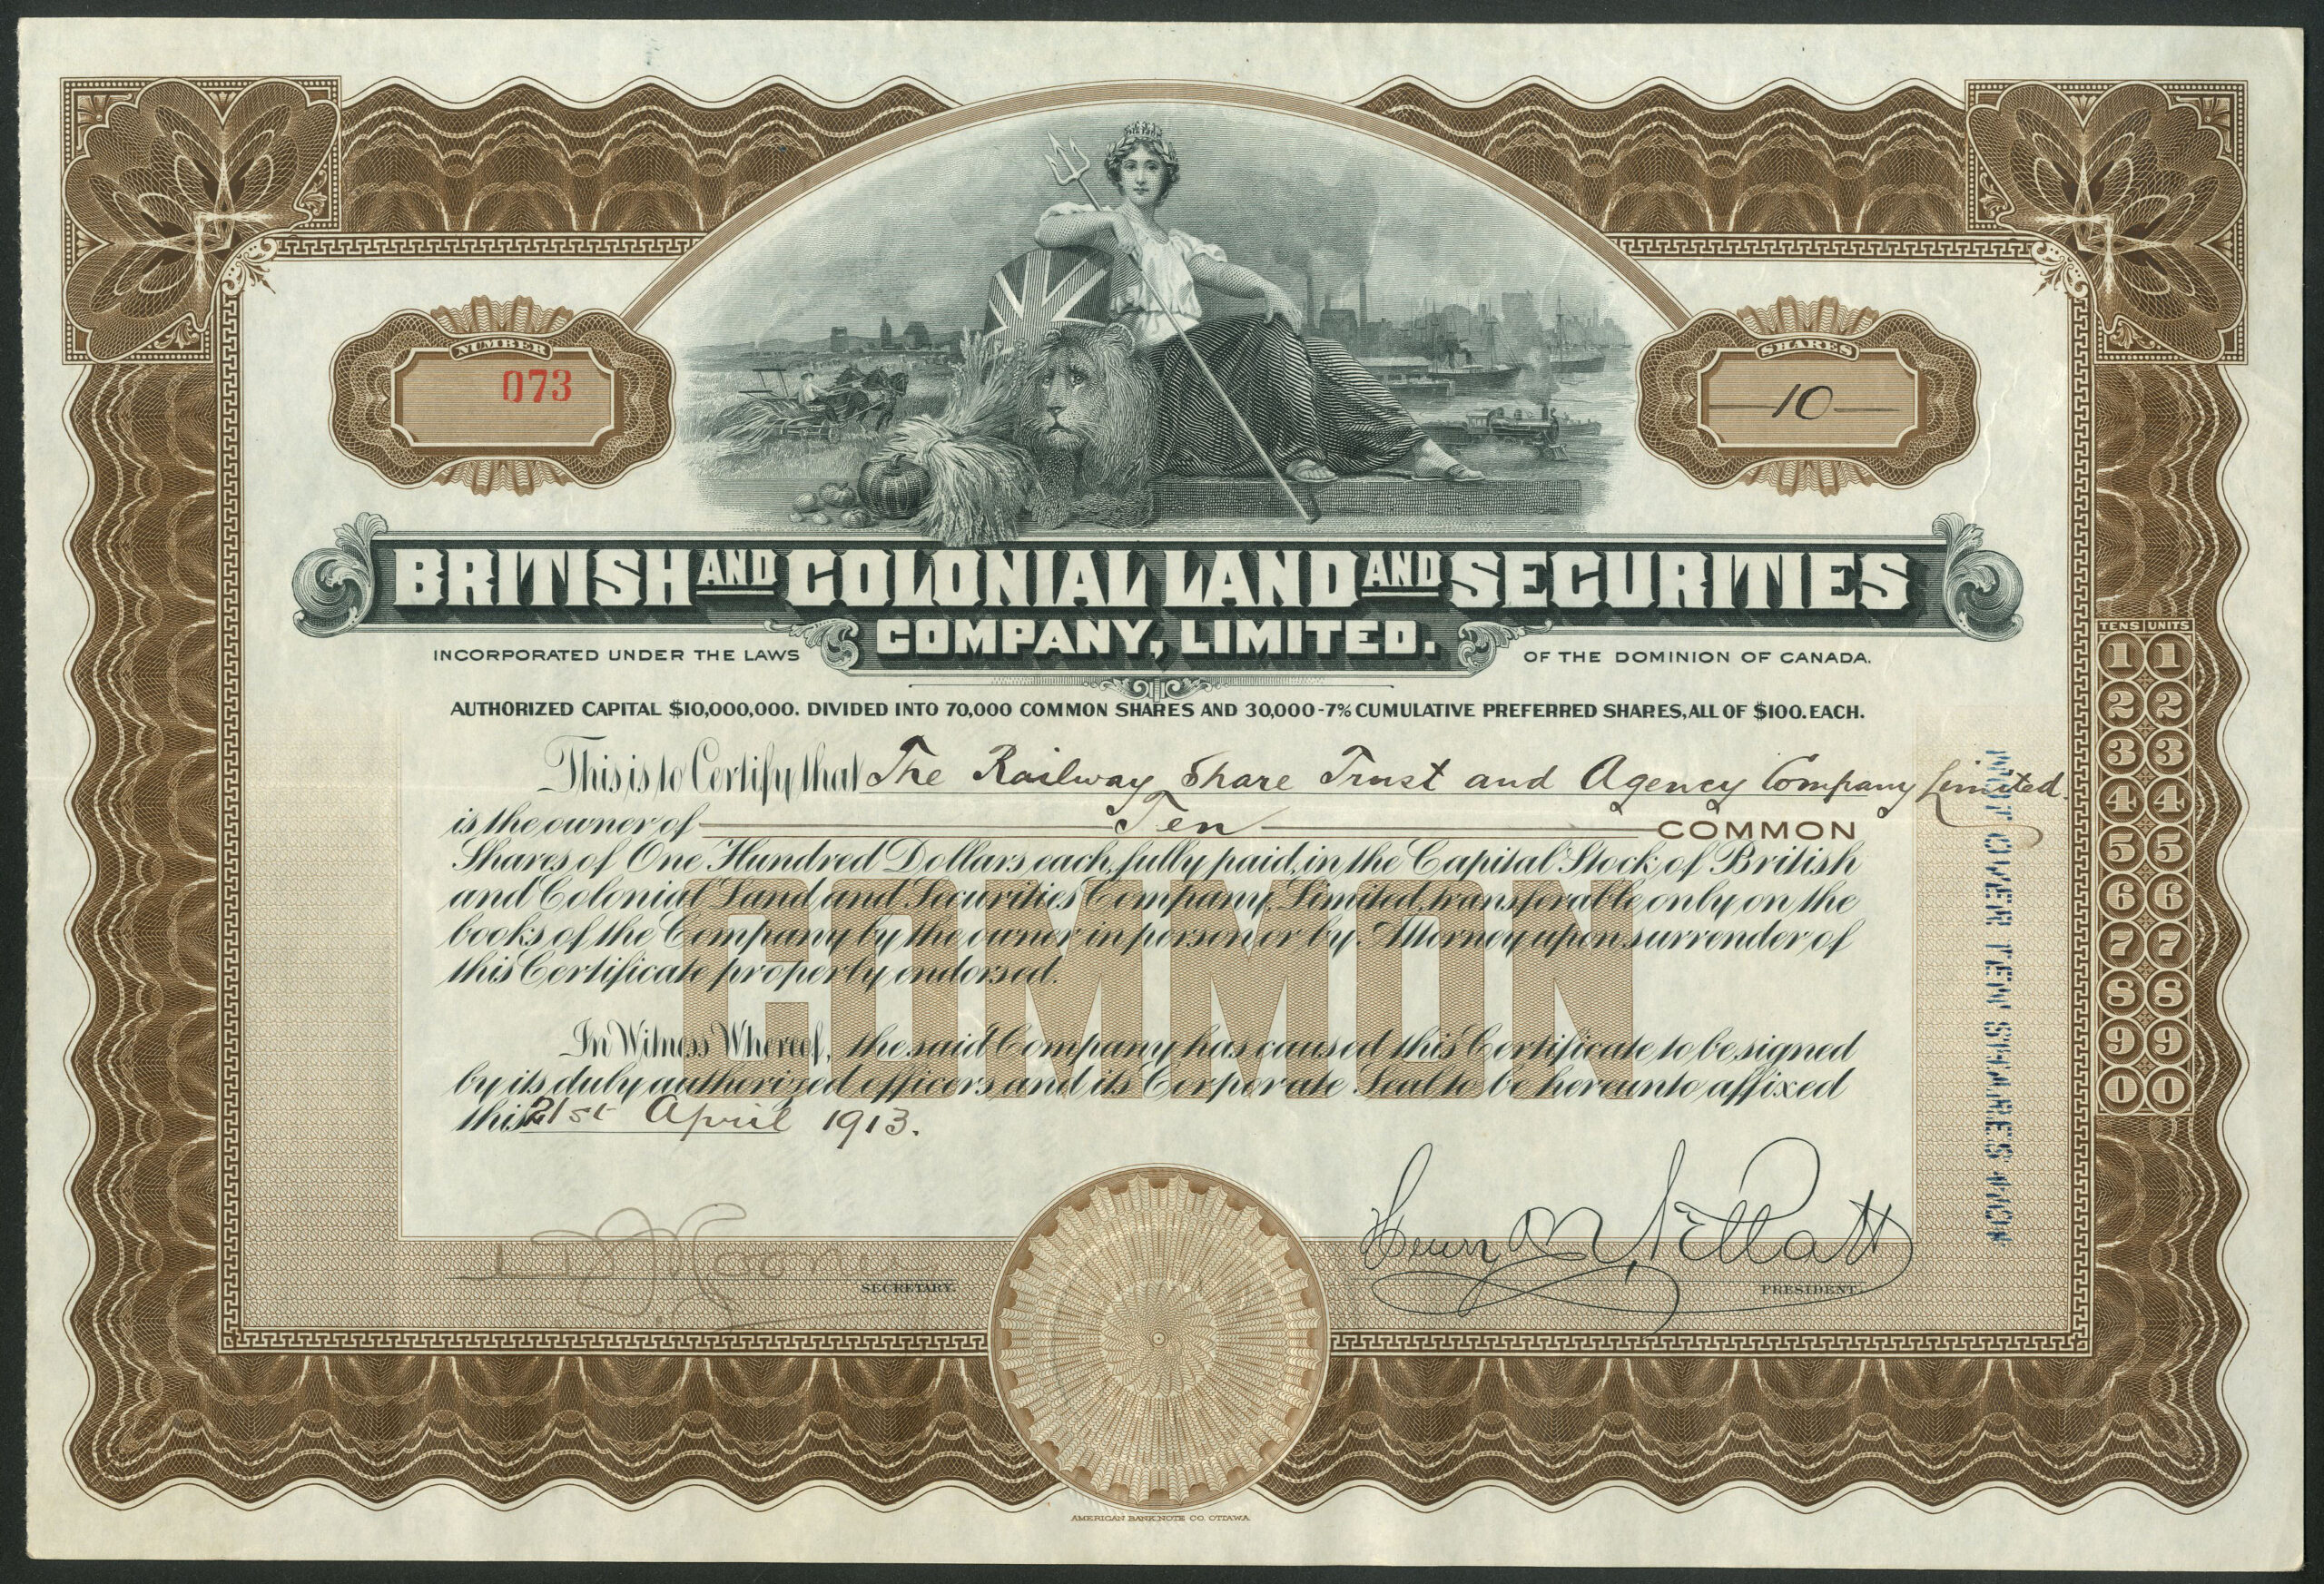 NUMBER
073
SHARES
10
BRITISH AND COLONIAL LAND AND SECURITIES
COMPANY, LIMITED.
INCORPORATED UNDER THE LAWS OF THE DOMINION OF CANADA.
AUTHORIZED CAPITAL $10,000,000. DIVIDED INTO 70,000 COMMON SHARES AND 30,000-7% CUMULATIVE PREFERRED SHARES, ALL OF $100. EACH.
This is to Certify that The Railway Share Trust and Agency Company Limited.
is the owner of Ten COMMON
Shares of One Hundred Dollars each, fully paid, in the Capital Stock of British
and Colonial Land and Securities Company, Limited, transferable only on the
books of the Company by the owner in person or by Attorney upon surrender of
this Certificate properly endorsed.
COMMON
In Witness Whereof, the said Company has caused this Certificate to be signed
by its duly authorized officers and its Corporate Seal to be hereunto affixed
this 21st April 1913.
Henry M Pellatt
SECRETARY.
PRESIDENT.
TENS UNITS
1 1
2 2
3 3
4 4
5 5
6 6
7 7
8 8
9 9
0 0
NOT OVER TEN SHARES
AMERICAN BANK NOTE CO. OTTAWA